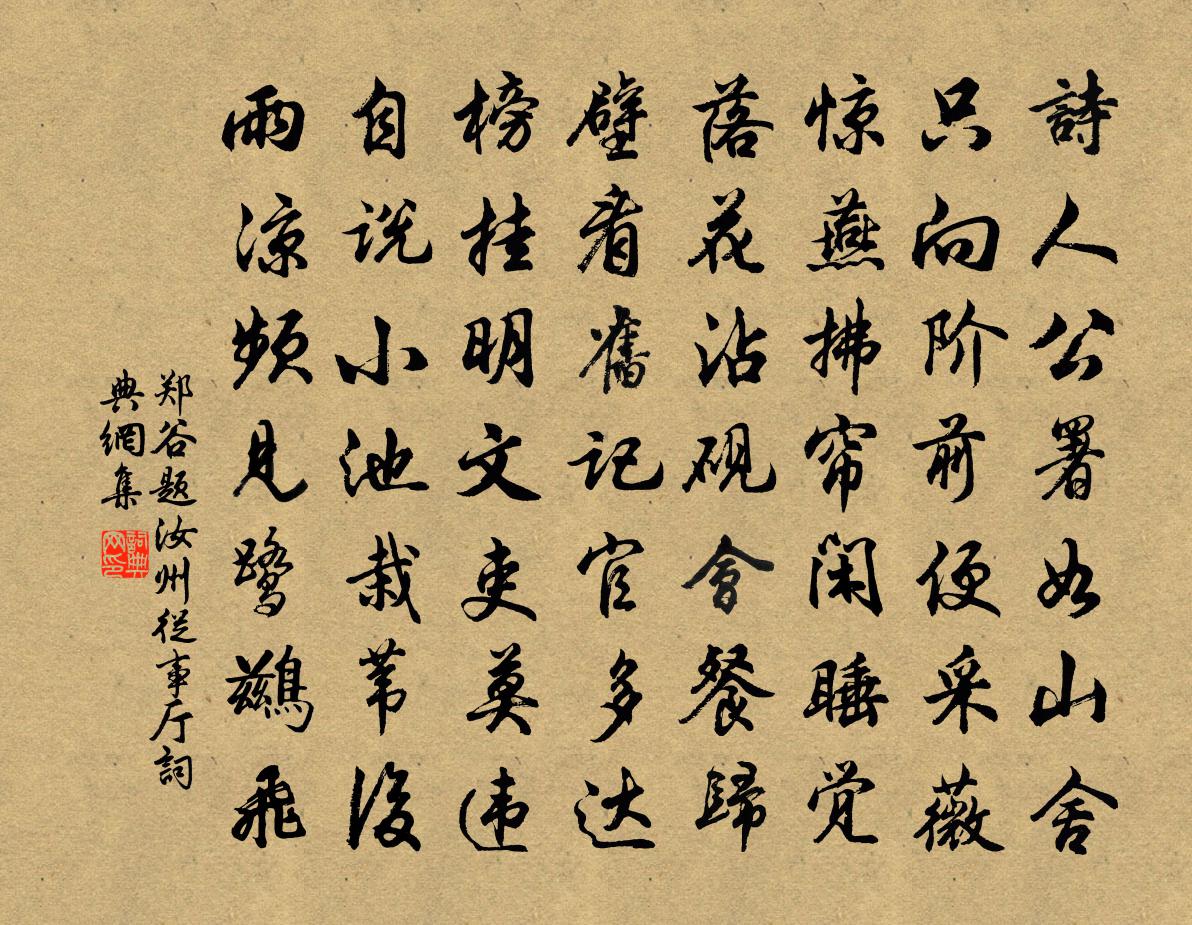 詩人公署如山舍
只向阶前便采薇
惊燕拂帘闲睡觉
落花沾砚會餐歸
壁看舊记官多达
榜挂明文吏莫违
自说小池栽苇後
雨凉频见鹭鷀飛
郑谷题汝州從事厅詞
典網集
詞典网印